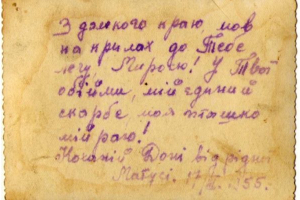 З далекого краю мов
на крилах до Тебе
лечу, Миросю! У Твої
обійми, мій єдиний
скарбе моя пташко,
мій раю!
Коханій Доні від рідної
Матусі. 17 55.